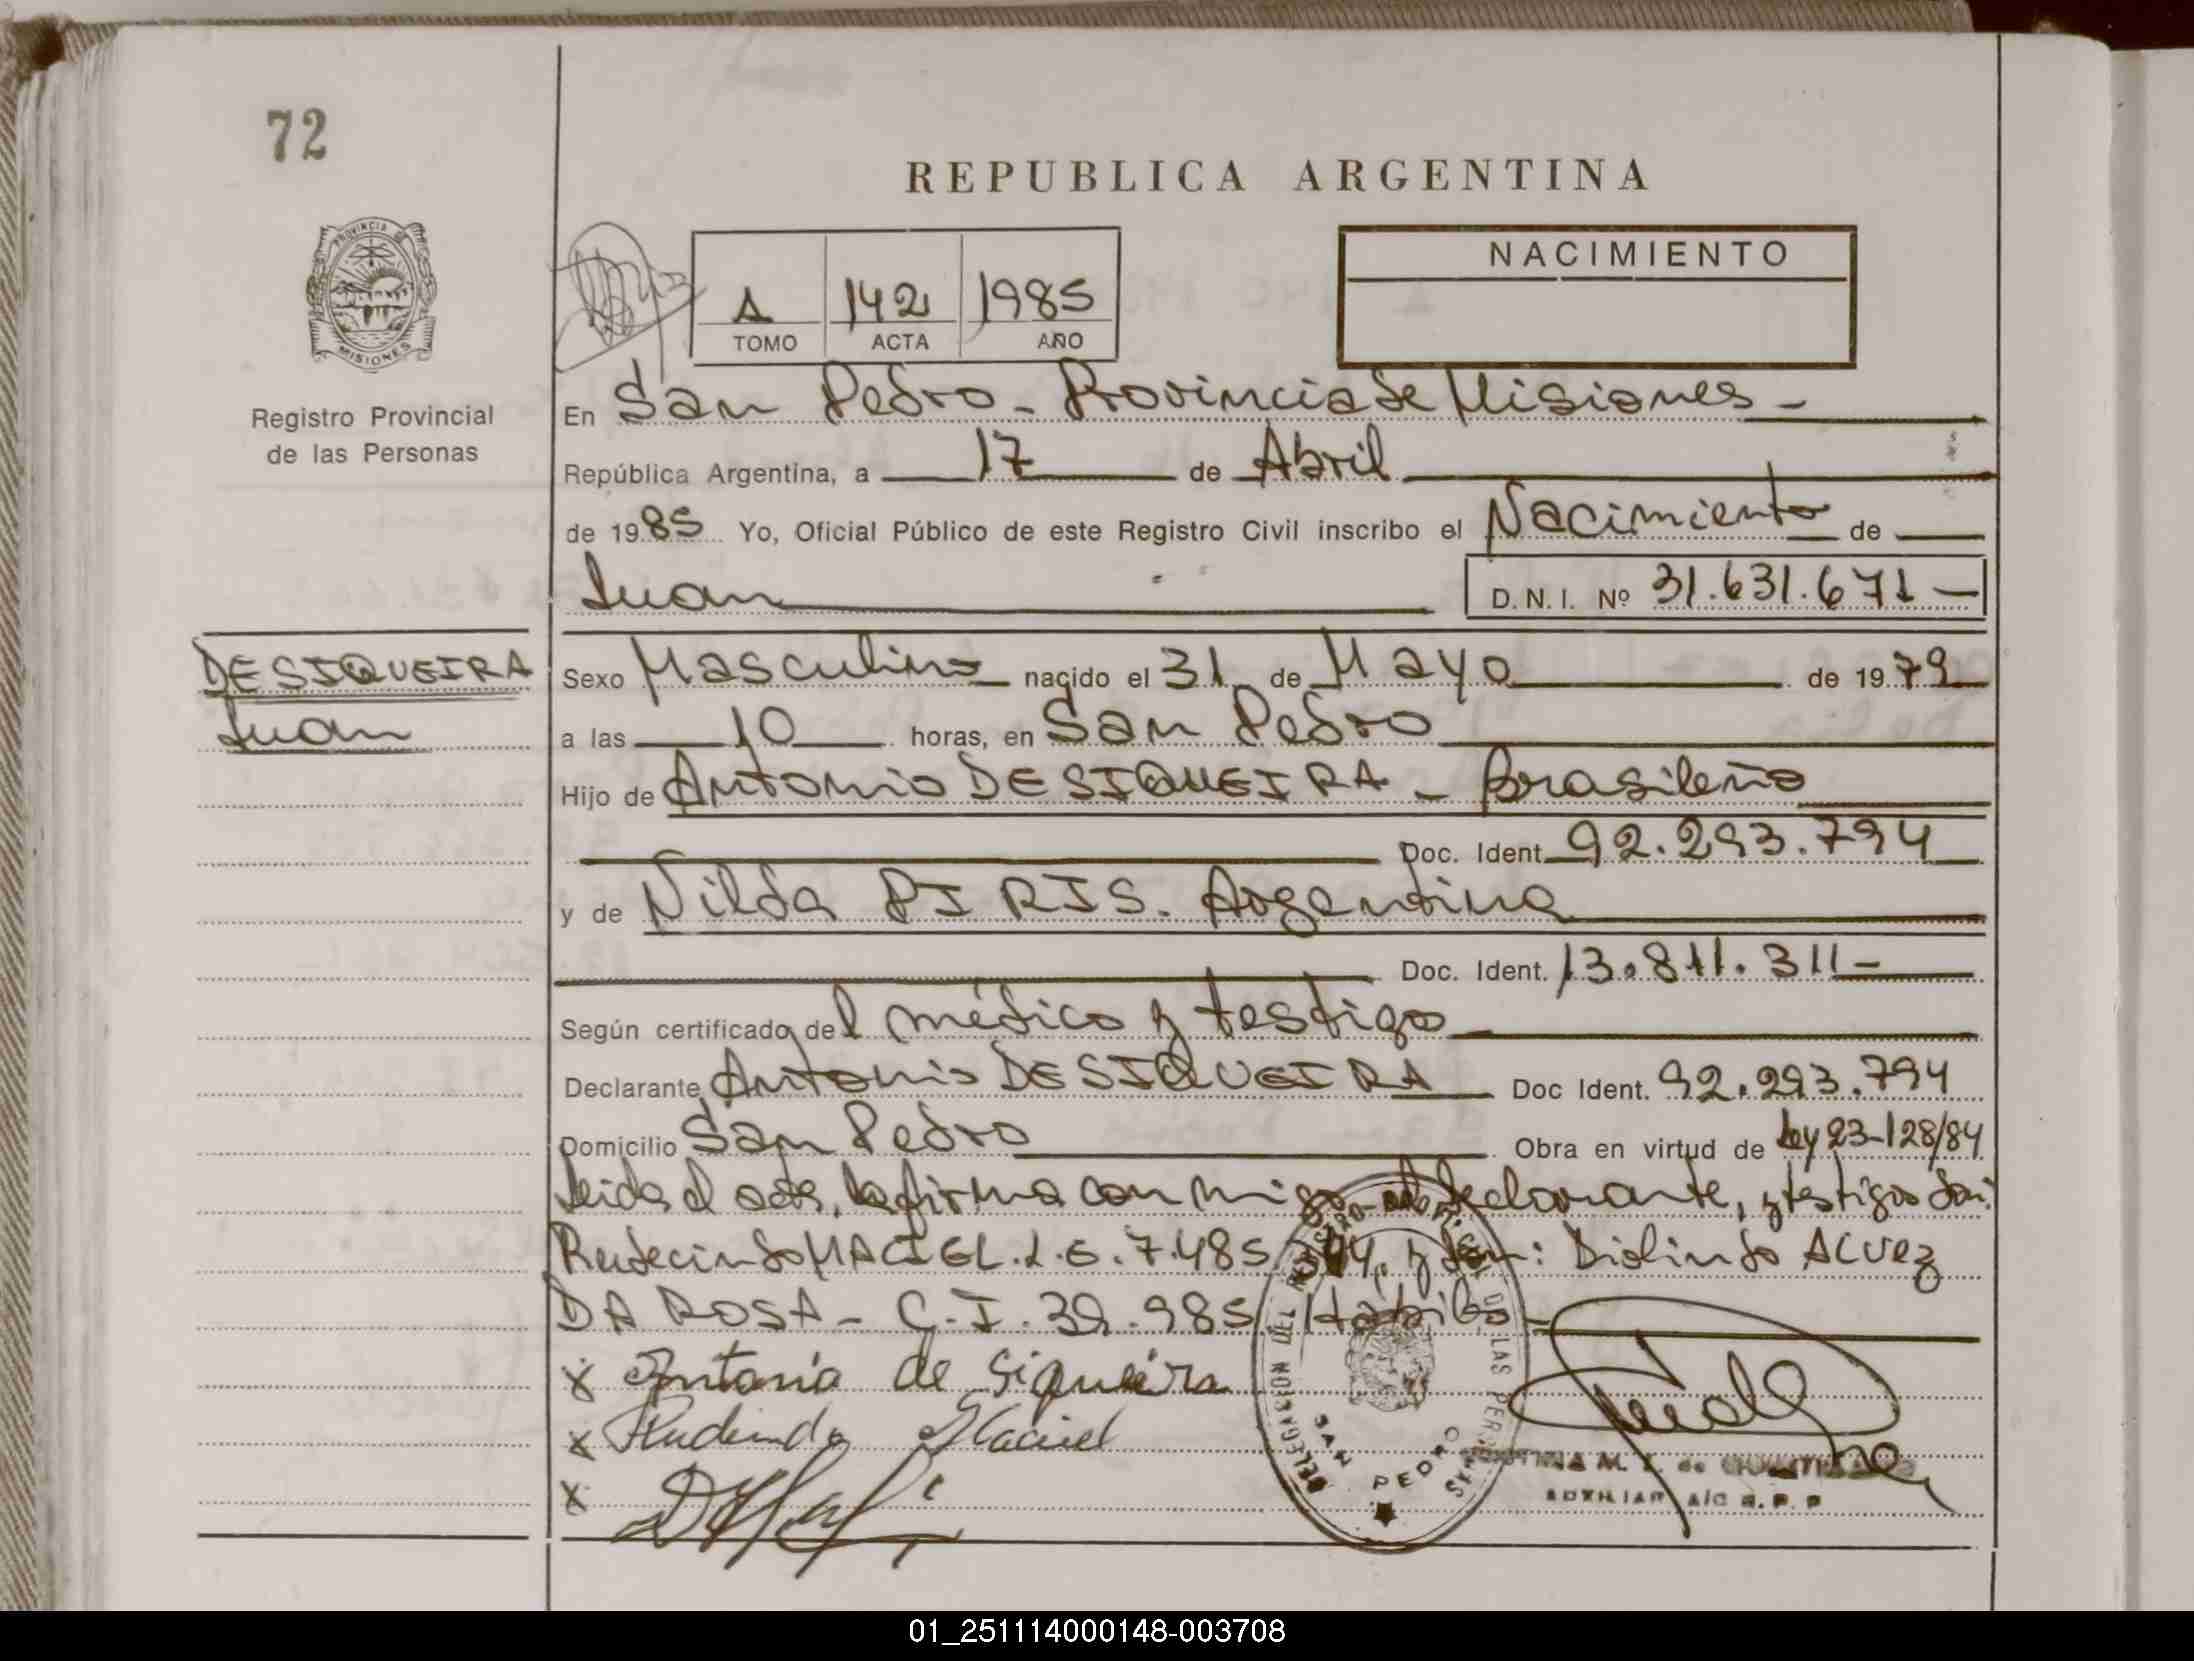 72
REPUBLICA ARGENTINA
PROVINCIA DE
MISIONES
Registro Provincial
de las Personas
A 142 1985
TOMO ACTA AÑO
NACIMIENTO
En San Pedro - Provincia de Misiones -
República Argentina, a 17 de Abril
de 1985 Yo, Oficial Público de este Registro Civil inscribo el Nacimiento de
Juan D.N.I. Nº 31.631.671 -
DESIQUEIRA
Juan
Sexo Masculino nacido el 31 de Mayo de 1979
a las 10 horas, en San Pedro
Hijo de Antonio DESIQUEIRA - Brasileño
Doc. Ident. 92.293.794
y de Nilda PIRIS. Argentina
Doc. Ident. 13.811.311 -
Según certificado del médico y testigo
Declarante Antonio DESIQUEIRA Doc Ident. 92.293.794
Domicilio San Pedro Obra en virtud de Ley 23-128/84
Leida el acta, la firma con migo el declarante, y testigos Don:
Rudecindo MACIEL. L.E. 7.485.344, y Don: Diolindo ALVEZ
DA ROSA - C.I. 39.985 Habiles -
x Antonio de Siqueira
x Rudecindo Maciel
x
DELEGACION DEL REGISTRO DE LAS PERSONAS
SAN PEDRO
AUXILIAR A/C R.P.P
01_251114000148-003708